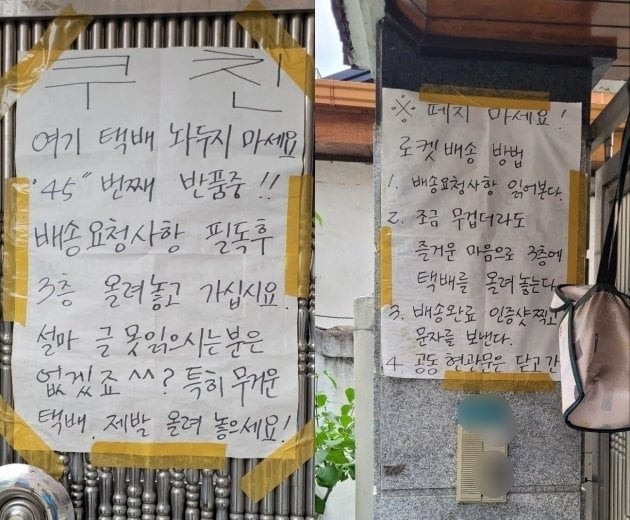 쿠친
여기 택배 놔두지 마세요
"45" 번째 반품중 !!
배송요청사항 필독후
3층 올려놓고 가십시요.
설마 글 못읽으시는분은
없겠죠 ^^? 특히 무거운
택배. 제발 올려 놓으세요!
※ 떼지 마세요!
로켓배송 방법
1. 배송요청사항 읽어본다.
2. 조금 무겁더라도
즐거운 마음으로 3층에
택배를 올려 놓는다
3. 배송완료 인증샷찍고
문자를 보낸다.
4. 공동현관문은 닫고 간